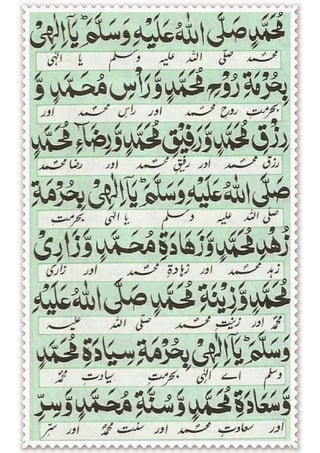 مُحَمَّدٍ صَلَّى اللهُ عَلَيْهِ وَسَلَّمَ ط يَا اِلٰهِىْ
محمد صلی اللہ علیہ وسلم یا الٰہی
بِحُرْمَةِ رُوْحِ مُحَمَّدٍ وَّرَأْسِ مُحَمَّدٍ وَّ
بحرمت روح محمد اور راس محمد اور
رِزْقِ مُحَمَّدٍ وَّرَفِيْقِ مُحَمَّدٍ وَّرِضَآءِ مُحَمَّدٍ
رزق محمد اور رفیق محمد اور رضا محمد
صَلَّى اللهُ عَلَيْهِ وَسَلَّمَ ط يَآ اِلٰهِىْ بِحُرْمَةِ
صلی اللہ علیہ وسلم یا الٰہی بحرمت
زُهْدِ مُحَمَّدٍ وَّزَهَادَةِ مُحَمَّدٍ وَّزَارِىْ
زہد محمد اور زہادۃ محمد اور زاری
مُحَمَّدٍ وَّزِيْنَةِ مُحَمَّدٍ صَلَّى اللهُ عَلَيْهِ
محمد اور زینت محمد صلی اللہ علیہ
وَسَلَّمَ ط يَآ اِلٰهِىْ بِحُرْمَةِ سِيَادَةِ مُحَمَّدٍ
وسلم اے الٰہی بحرمت سیادت محمد
وَّسَعَادَةِ مُحَمَّدٍ وَّسُنَّةِ مُحَمَّدٍ وَّسِرِّ
اور سعادت محمد اور سنت محمد اور سر